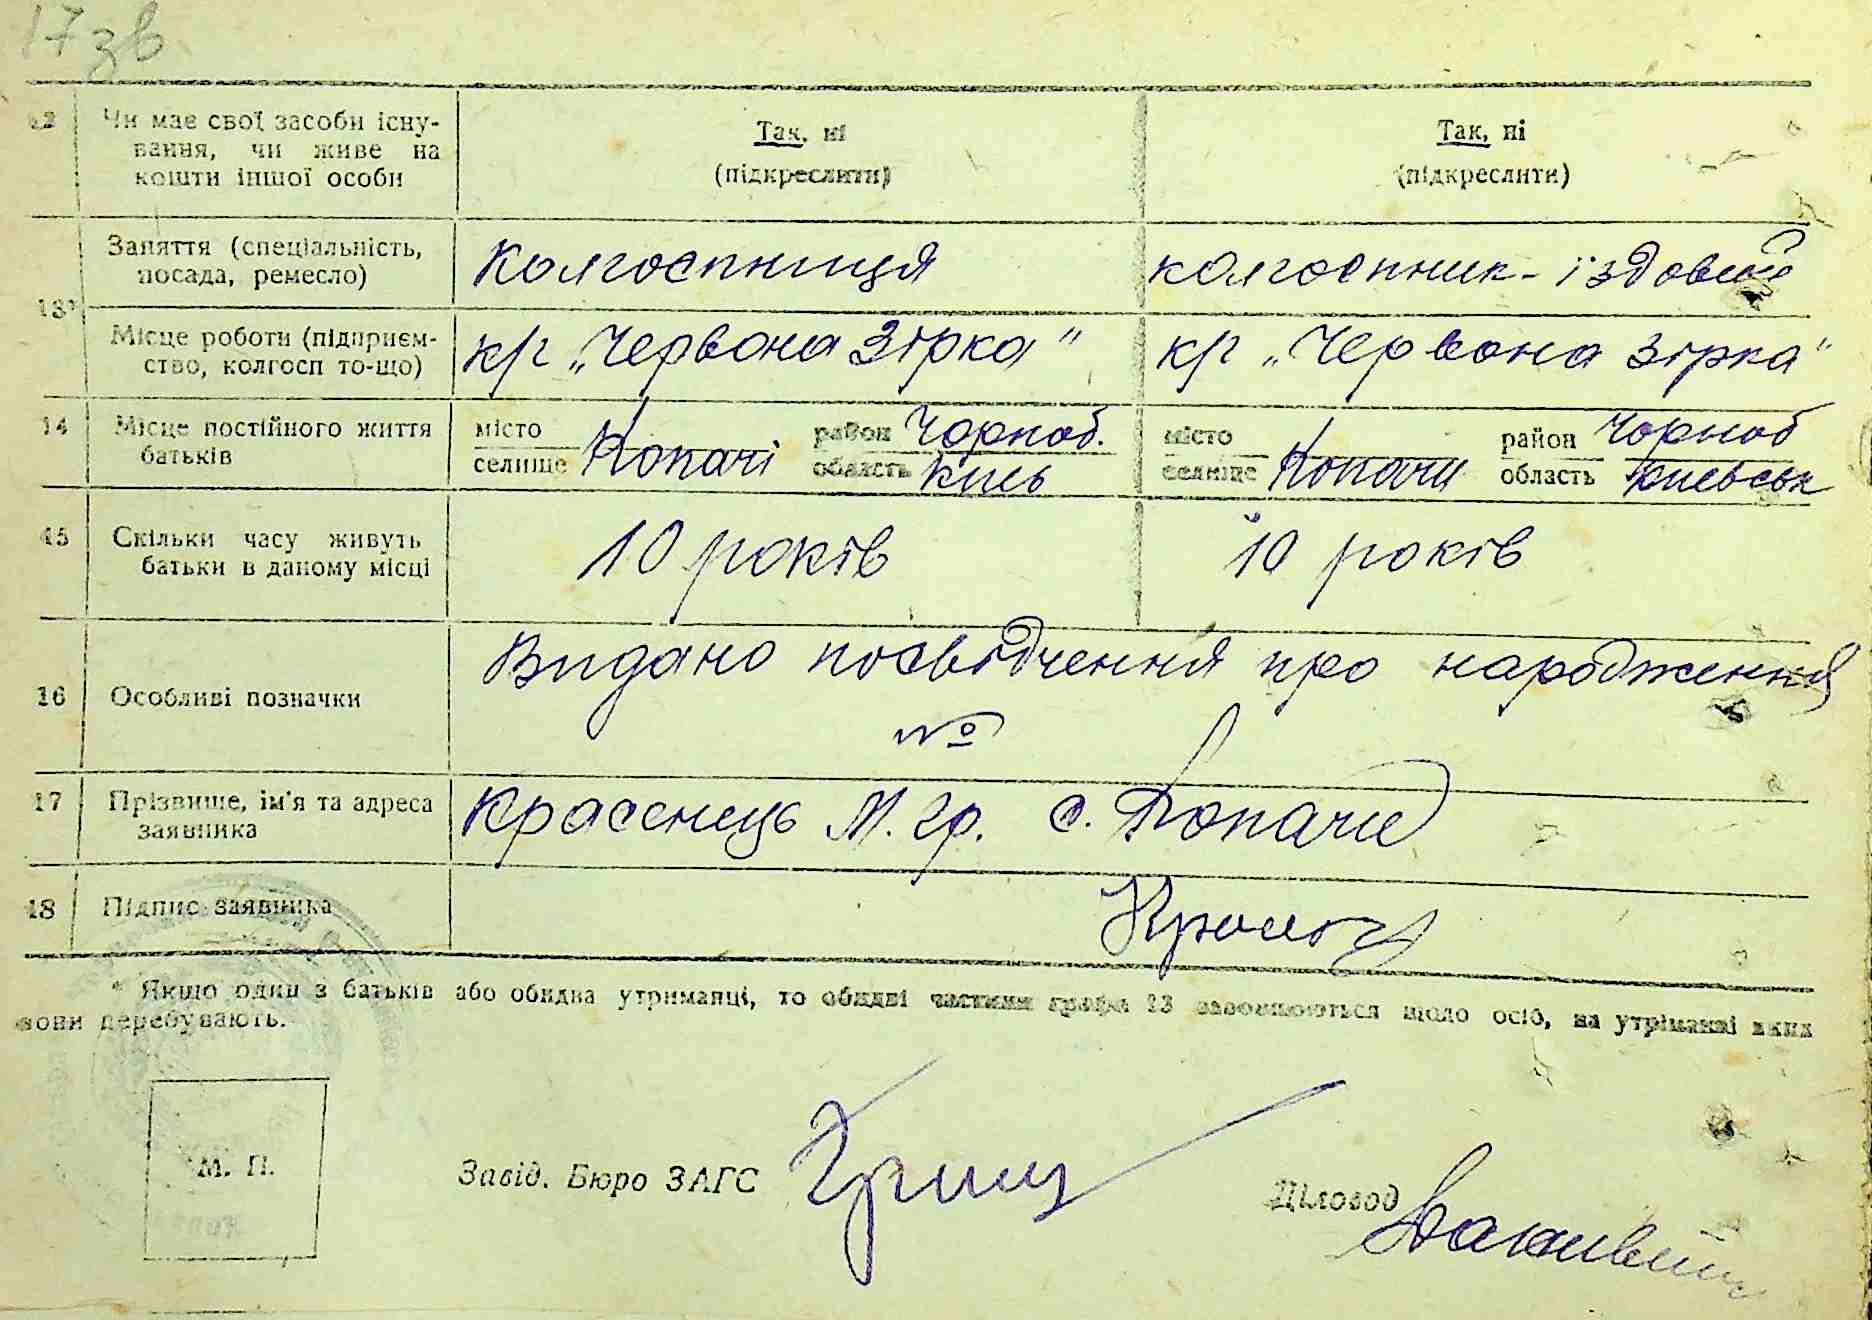 17 зв
12 Чи має свої засоби існу-
вання, чи живе на
кошти іншої особи
Так, ні
(підкреслити)
Так, ні
(підкреслити)
13*
Заняття (спеціальність,
посада, ремесло)
Колгоспниця
колгоспник - їздовий
Місце роботи (підприєм-
ство, колгосп то-що)
к/г „Червона Зірка"
к/г „Червона зірка"
14 Місце постійного життя
батьків
місто
селище Копачі
район Чорноб.
область Київ
місто
селище Копачи
район Чорноб
область Киевськ
15 Скільки часу живуть
батьки в даному місці
10 років
10 років
16 Особливі позначки
Видано посвідчення про народження
№
17 Прізвище, ім'я та адреса
заявника
Красенець М. Гр. с. Копачи
18 Підпис заявника
* Якщо один з батьків або обидва утриманці, то обидві частини графи 13 заповнюються щодо осіб, на утриманні яких
вони перебувають.
М. П.
Завід. Бюро ЗАГС
Діловод